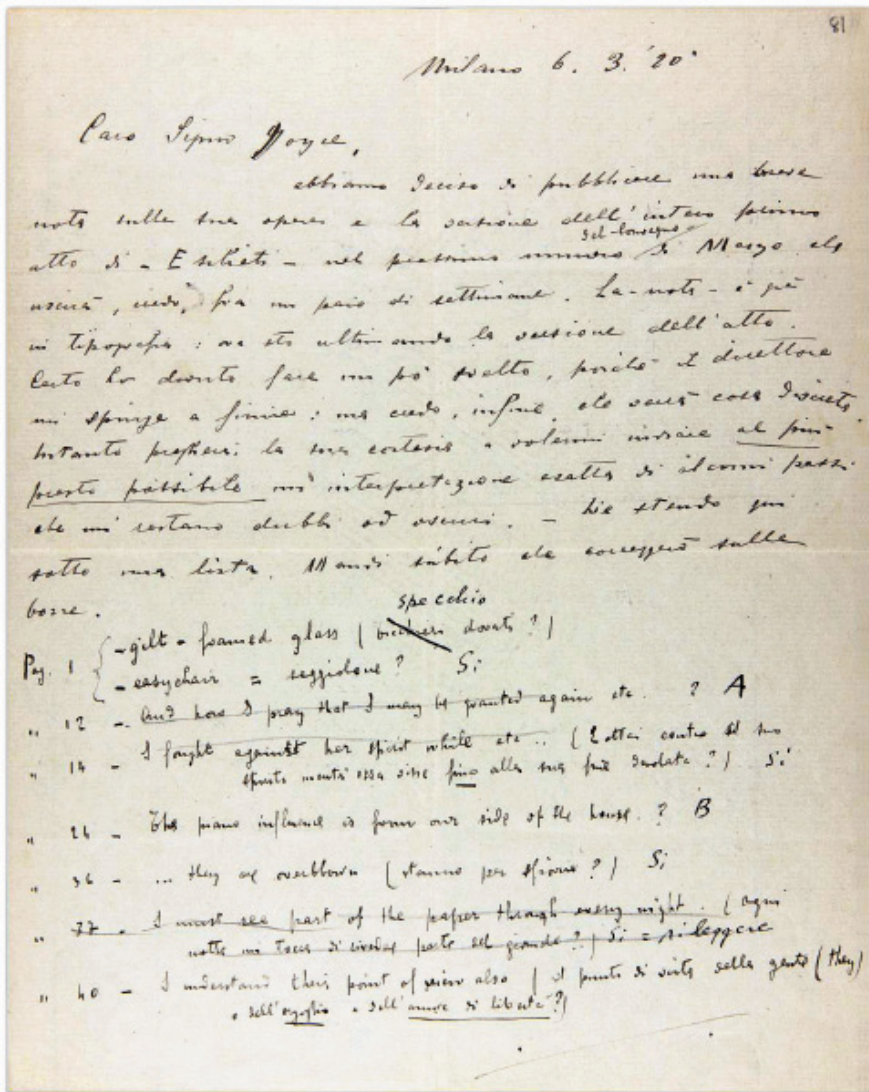 81
Milano 6. 3. '20
Caro Signor Joyce,
abbiamo deciso di pubblicare una breve
nota sulla sua opera e la versione dell'intero primo
del Convegno
atto di - Esiliati - nel prossimo numero di Marzo che
uscirà, credo, fra un paio di settimane. La - nota - è già
in tipografia: ora sto ultimando la versione dell'atto.
Certo ho dovuto fare un pò svelto, poichè il direttore
mi spinge a finire: ma credo, infine, che verrà cosa discreta.
Intanto pregherei la sua cortesia a volermi inviare al più
presto possibile un'interpretazione esatta di alcuni passi
che mi restano dubbi od oscuri. - Lie stendo qui
sotto una lista. Mandi sùbito che correggerò sulle
bozze.
specchio
Pag. 1 - gilt - framed glass (bicchieri dorati?)
- easychair = seggiolone? Si
" 12 - And how I pray that I may be granted again etc. ? A
" 14 - I fought against her spirit while etc.. (Lottai contro il suo
spirito mentr'essa visse fino alla sua fine desolata?) Si
" 24 - The piano influence is from our side of the house. ? B
" 36 - ... they are overblown (stanno per sfiorire?) Si
" 37 - I must see part of the paper through every night. (ogni
notte mi tocca di rivedere parte del giornale?) Si = rileggere
" 40 - I understand their point of view also (il punto di vista della gente (they)
o dell'orgoglio e dell'amore di libertà?)